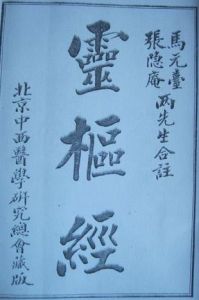 馬元臺
張隐庵 两先生合註
靈樞經
北京中西醫學研究總會藏版